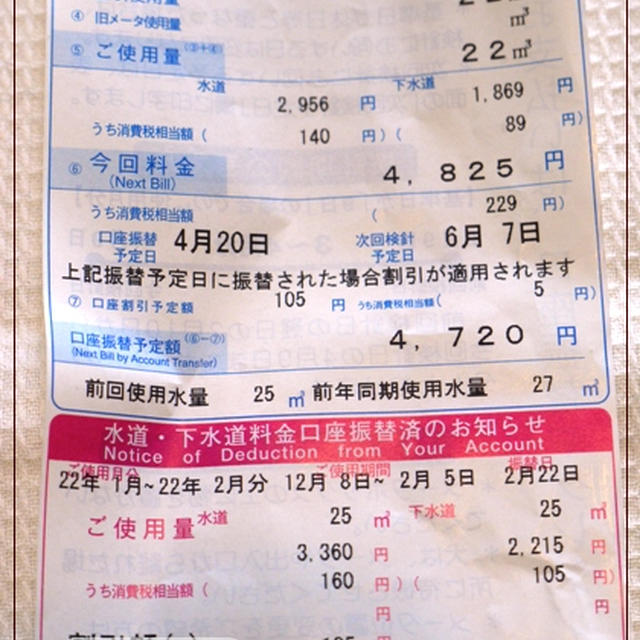 ④ 旧メータ使用量 ㎥
⑤ ご使用量 (③+④) 22㎥
水道 2,956 円 下水道 1,869 円
うち消費税相当額( 140 円)( 89 円)
⑥ 今回料金 4,825 円
(Next Bill)
うち消費税相当額 ( 229 円)
口座振替予定日 4月20日 次回検針予定日 6月 7日
上記振替予定日に振替された場合割引が適用されます
⑦ 口座割引予定額 105 円 うち消費税相当額( 5 円)
口座振替予定額 (⑥-⑦) 4,720 円
(Next Bill by Account Transfer)
前回使用水量 25 ㎥ 前年同期使用水量 27 ㎥
水道・下水道料金口座振替済のお知らせ
Notice of Deduction from Your Account
ご使用月分 ご使用期間 振替日
22年 1月~22年 2月分 12月 8日~ 2月 5日 2月22日
ご使用量 水道 25 ㎥ 下水道 25 ㎥
3,360 円 2,215 円
うち消費税相当額( 160 円)( 105 円)
円 円